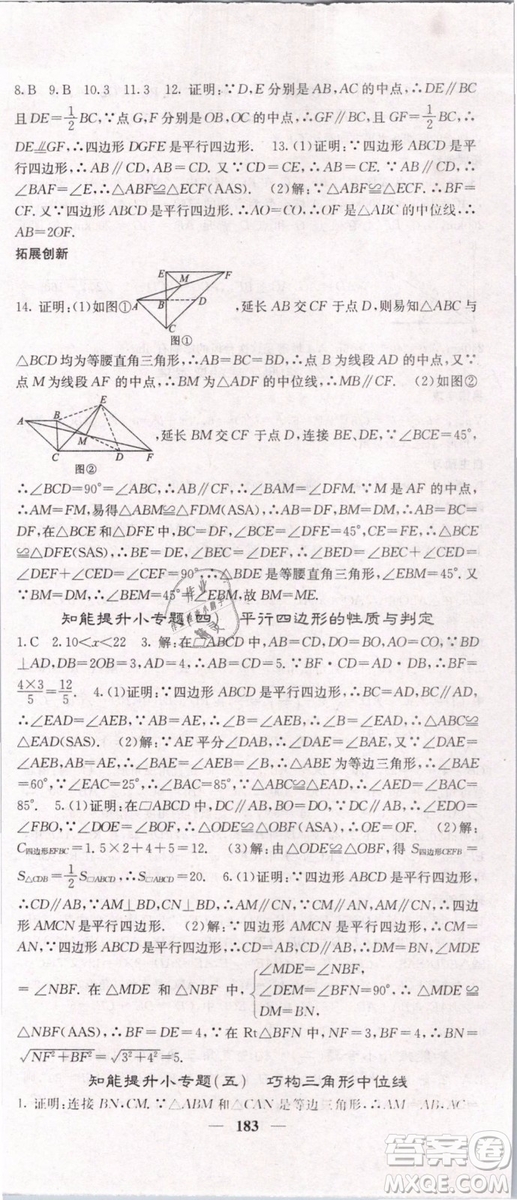 8.B 9.B 10.3 11.3 12. 证明:∵D,E分别是AB,AC的中点,∴DE∥BC
且DE=1/2BC,∵点G,F分别为OB,OC的中点,∴GF∥BC,且GF=1/2BC,∴
DE∥GF,∴四边形DGFE是平行四边形. 13.(1)证明:∵四边形ABCD是平
行四边形,∴AB∥CD,AB=CD. 又∵CE=CD,∴AB=CE. ∵AB∥CD,∴
∠BAF=∠E. ∴△ABF≌△ECF(AAS). (2)解:∵△ABF≌△ECF,∴BF
=CF. 又∵四边形ABCD是平行四边形. ∴AO=CO. ∴OF是△ABC的中位线,∴
AB=2OF.
拓展创新
E F M A B D C
14. 证明:(1)如图① ,延长AB交CF于点D,则易知△ABC与
图①
△BCD均为等腰直角三角形,∴AB=BC=BD. ∴点B为线段AD的中点,又∵
点M为线段AF的中点,∴BM为△ADF的中位线,∴BM∥CF. (2)如图②
E B A M C D F
,延长BM交CF于点D,连接BE,DE,∵∠BCE=45°,
图②
∴∠BCD=90°=∠ABC,∴AB∥CF,∴∠BAM=∠DFM. ∵M是AF的中点,
∴AM=FM,易得△ABM≌△FDM(ASA),∴AB=DF. ∵AB=BC,∴BC=
DF,在△BCE和△DFE中,BC=DF,∠BCE=∠DFE=45°,CE=FE,∴△BCE
≌△DFE(SAS),∴BE=DE,∠BEC=∠DEF,∴∠BED=∠BEC+∠CED=
∠DEF+∠CED=∠CEF=90°,∴△BDE是等腰直角三角形,又∵△ABM≌
△FDM,∴BM=DM,∴BM=ME=1/2BD,故BM=ME.
知能提升小专题(四) 平行四边形的性质与判定
1.C 2.10<x<22 3. 解:在▱ABCD中,∵AB∥CD,∴CD=AB=5. ∵BD
⊥AD,DB=2OD=3. ∴AD=√(AB²-BD²)=4. ∵AD·BD=AB·DF,∴DF=
4×3/5=12/5. 4.(1)证明:∵四边形ABCD是平行四边形,∴AD∥BC,AD=BC,
∴∠EAD=∠AEB,又∵AB=AE,∴∠B=∠AEB,∴∠B=∠EAD,∴△ABC≌
△EAD(SAS). (2)解:∵AE平分∠DAB,∴∠DAE=∠BAE;又∵∠DAE=
∠AEB,∴∠BAE=∠AEB=∠B,∴△ABE为等边三角形,∴∠BAE
=60°,∵∠EAC=25°,∴∠BAC=85°,∵△ABC≌△EAD,∴∠AED=∠BAC=
85°. 5.(1)证明:在▱ABCD中,∵AD∥BC,OD=OB,∴∠EDO=
∠FBO,∵∠DOE=∠BOF,∴△DOE≌△BOF(ASA),∴OE=OF. (2)解:
C四边形EFBC=1.5×2+4+5=12. (3)解:由△DOE≌△BOF,得S四边形CEFB=
S△CDB=1/2S▱ABCD,∴S▱ABCD=20. 6.(1)证明:∵四边形ABCD是平行四边形,
∴CD∥AB,∵AM⊥BD,CN⊥BD,∴AM∥CN,又∵CM∥AN,∴四边
形AMCN是平行四边形. (2)解:∵四边形AMCN是平行四边形,∴CM=
AN,∵四边形ABCD是平行四边形,∴CD=AB,CD∥AB,∴DM=BN,∠MDE
=∠NBF. 在△MDE和△NBF中,{∠MDE=∠NBF,
∠DEM=∠BFN=90°,∴△MDE≌
DM=BN,
△NBF(AAS),∴BF=DE=4,在Rt△BFN中,∵BF=4,NF=3,∴BN=
√(NF²+BF²)=√(3²+4²)=5.
知能提升小专题(五) 巧构三角形中位线
1. 证明:连接BN,CM,∵△ABM和△CAN是等边三角形,∴AM=AB,AC=
183
答案圈
MXQE.COM